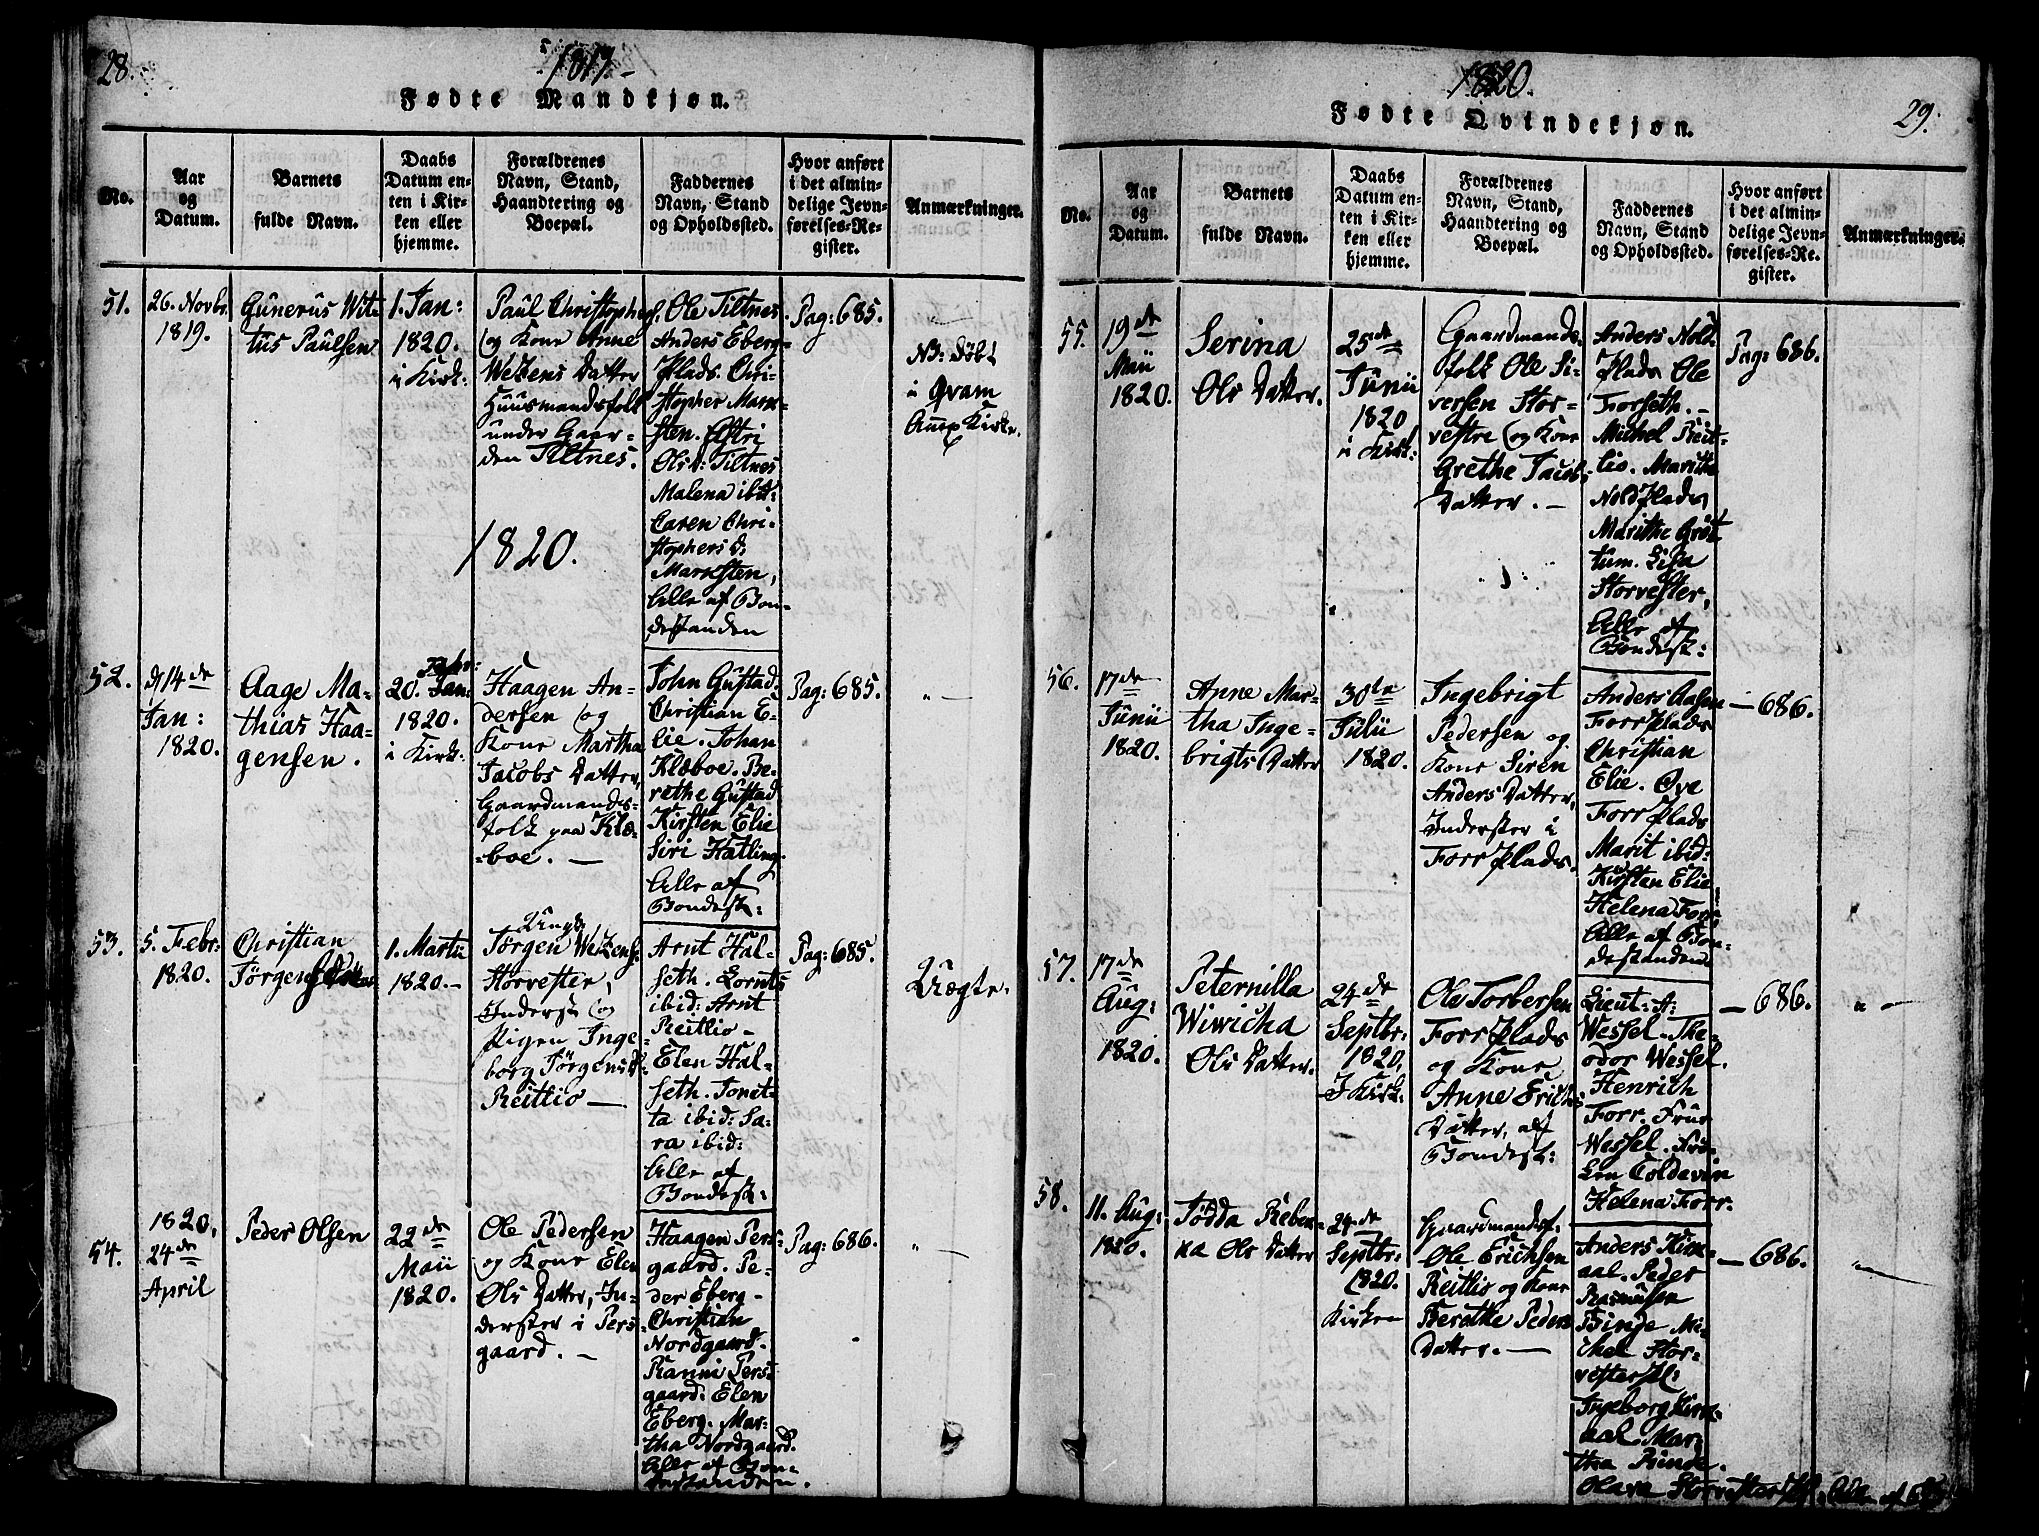 28.
1819.
Fødte Mandkjøn.
No.
Aar
og
Datum.
Barnets
fulde Navn.
Daabs
Datum en-
ten i Kir-
ken eller
hjemme.
Forældrenes
Navn, Stand,
Haandtering og
Boepæl.
Faddernes
Navn, Stand
og Opholdssted.
Hvor anført
i det almin-
delige Jevn-
førelses-Re-
gister.
Anmærkninger.
51.
26. Novbr
1819.
Gunerus Wit-
tus Paulsen
1. Jan:
1820.
i Kirk:
Paul Christophers.
og Kone Anne
Wetzens Datter
Huusmandsfolk
under Gaar-
den Tiltnes.
1820.
Ole Tiltnes
Anders Eberg-
Plads. Chri-
stopher Mark-
sten. Astri
Olsd: Tiltnes
Malena ibid:
Caren Chri-
stophers d:
Marksten,
Alle af Bon-
destanden
Pag: 685.
NB: Døbt
i Qvam
Anex Kirke.
52.
d 14de
Jan:
1820.
Aage Ma-
thias Haa-
gensen.
20. Febr:
1820.
i Kirk:
Haagen An-
dersen og
Kone Martha
Jacobs Datter,
Gaardmands-
folk paa Klæ-
boe. —
John Gustad
Christian E-
lie. Johan
Klæboe. Be-
rethe Gustad
Kirsten Elie
Siri Hatling.
Alle af
Bondest:
Pag: 685.
" —
53.
5. Febr:
1820.
Christian
Jørgensen
1. Martii
1820. —
Ungk:
Jørgen Wetzens.
Storvester,
Inderst og
Pigen Inge-
borg Jørgensd:
Reitlio —
Arnt Hal-
seth. Lornts
ibid: Arnt
Reitlio —
Elen Hal-
seth. Tonet-
ta ibid: Sa-
ra ibid:
Alle af
Bondest:
Pag: 685.
Uægte.
54.
1820.
24de
April
Peder Olsen
22de
Maii
1820.
Ole Pedersen
og Kone Elen
Ols Datter, In-
derster i Pers-
gaard. —
Haagen Pers-
gaard. Pe-
der Eberg-
Christian
Nordgaard.
Ranni Pers-
gaard: Elen
Eberg. Mar-
tha Nordgaard.
Alle af Bon-
destanden.
Pag: 686.
" —
1820.
29.
Fødte Qvindekjøn.
No.
Aar
og
Datum.
Barnets
fulde Navn.
Daabs
Datum en-
ten i Kir-
ken eller
hjemme.
Forældrenes
Navn, Stand,
Haandtering og
Boepæl.
Faddernes
Navn, Stand
og Opholdssted.
Hvor anført
i det almin-
delige Jevn-
førelses-Re-
gister.
Anmærkninger.
55.
19de
Maii
1820.
Serina
Ols Datter.
25de
Junii
1820
i Kirk:
Gaardmands-
folk Ole Si-
versen Stor-
vestre og Kone
Grethe Jacobs
Datter. —
Anders Nold-
Plads Ole
Forseth. —
Michel Reit-
lio. Marithe
Noldplads
Marithe Grøt-
tum. Lisa
Storvester,
Alle af
Bondest:
Pag: 686.
56.
17de
Junii
1820.
Anne Mar-
tha Inge-
brigts Datter
30te
Julii
1820.
Ingebrigt
Pedersen og
Kone Siren
Anders Datter,
Inderster i
Forr Plads.
Anders Aasen
Forr Plads
Christian
Elie. Ove
Forr Plads
Marit ibid:
Kirsten Elie,
Helena Forr
Alle af Bon-
destanden
— 686.
57.
17de
Aug:
1820.
Peternilla
Wiwicha
Ols Datter.
24de
Septbr:
1820,
I Kirk:
Ole Torbersen
Forr Plads
og Kone
Anne Erichs
Datter, af
Bondest:
Lieut: A:
Wessel. The-
odor Wessel.
Henrich
Forr. Frue
Wessel. Frø-
ken Coldevin
Helena Forr.
— 686.
" —
58.
11. Aug:
1820.
Tødda Reben-
na Ols Datter
24de
Septbr:
1820.
Kirken
Gaardmandsf.
Ole Erichsen
Reitlio og Kone
Berethe Peders
Datter. —
Anders Kim-
aal. Peder
Rasmusen
Binde Mi-
chel Stor-
vestersl:
Ingeborg Kim-
aal. Mar-
tha Binde.
Olava Storvestersl, Alle af
— 686.
" —